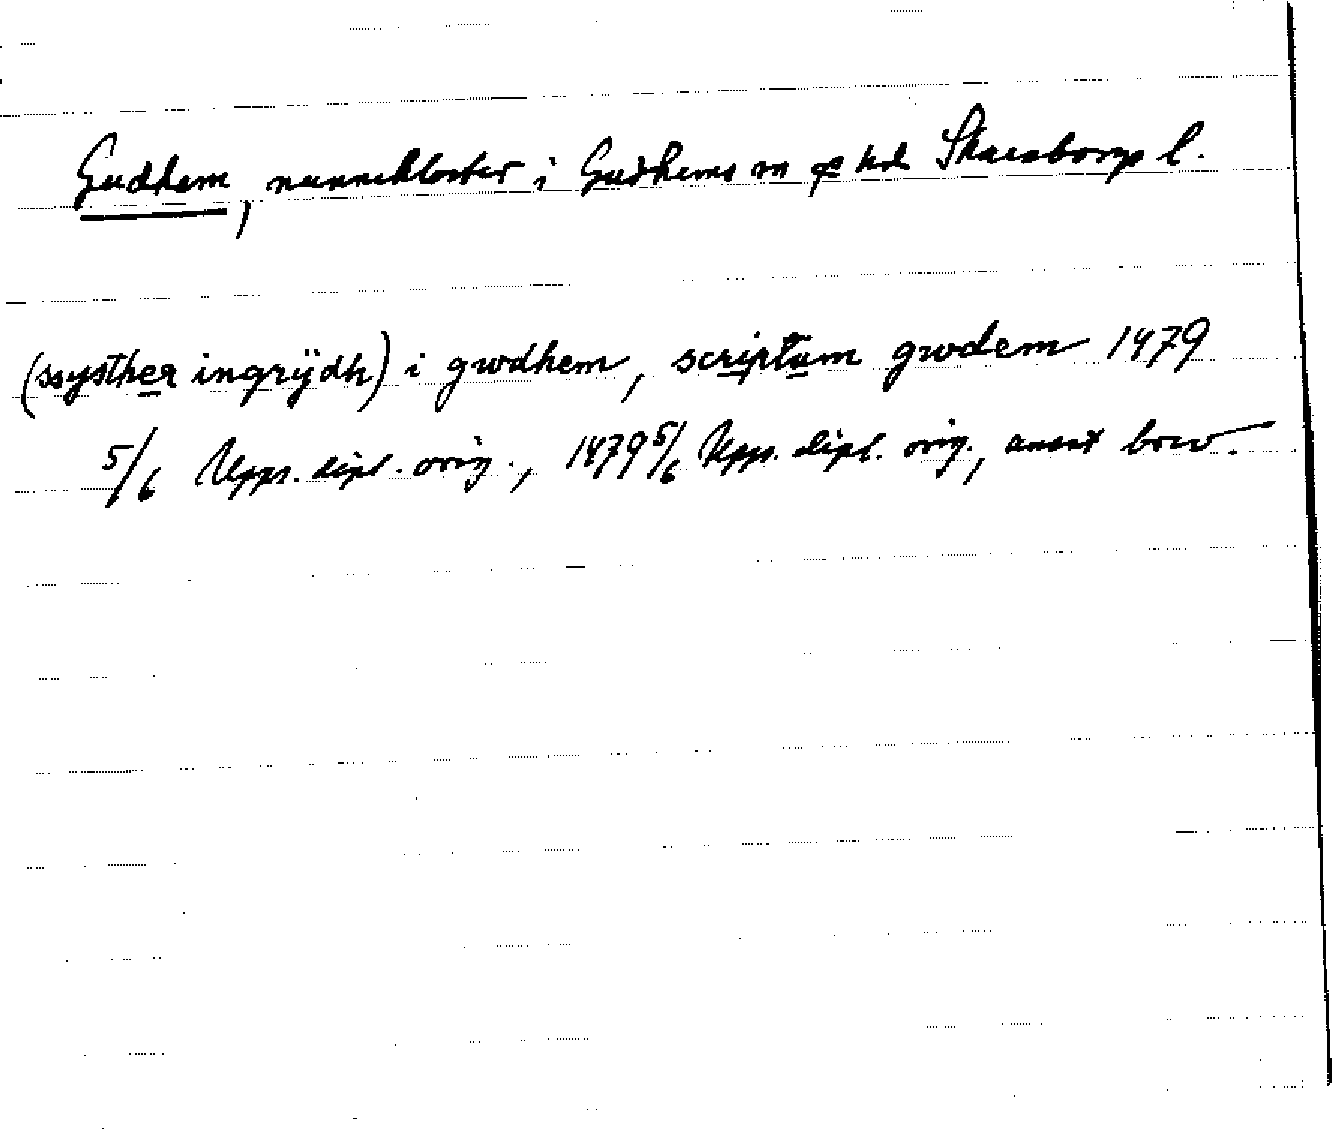 Gudhem, nunnekloster i Gudhems sn o hd Skaraborgs l.
(ssysther ingrÿdh) i gwdhem, scriptum gwdem 1479
5/6 Upps. dipl. orig., 1479 5/6 Upps. dipl. orig., annat brev.